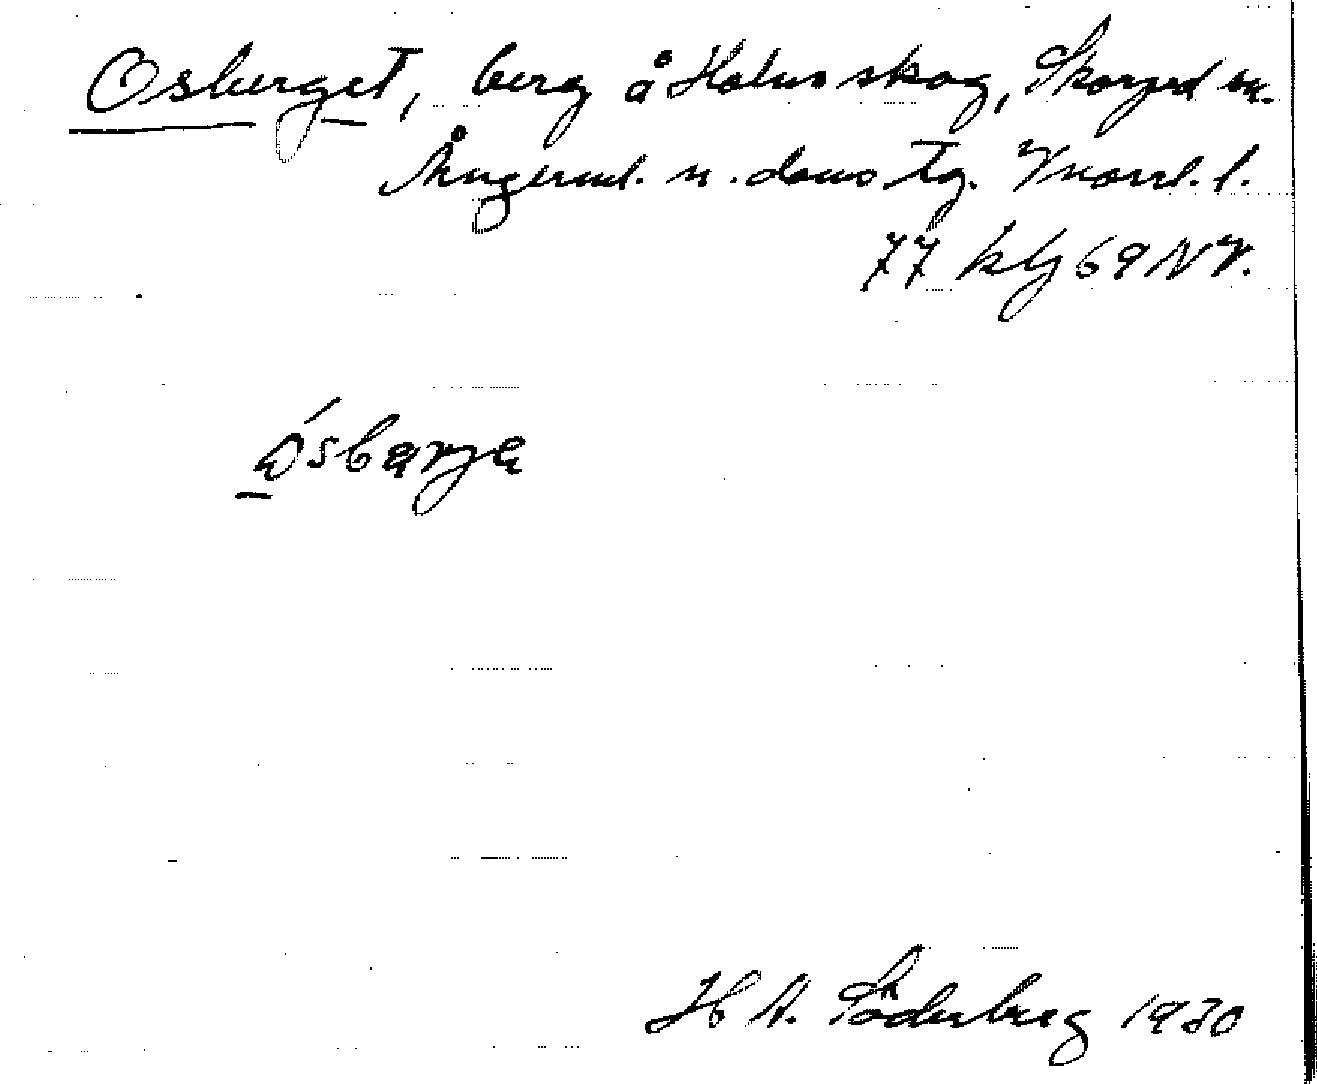 Osberget, berg å Holms skog, Skorped sn.
Ångerml. n. doms.tg. Vnorrl. l.
77 klj 69 NV.
ósbarja
H A. Söderberg 1930